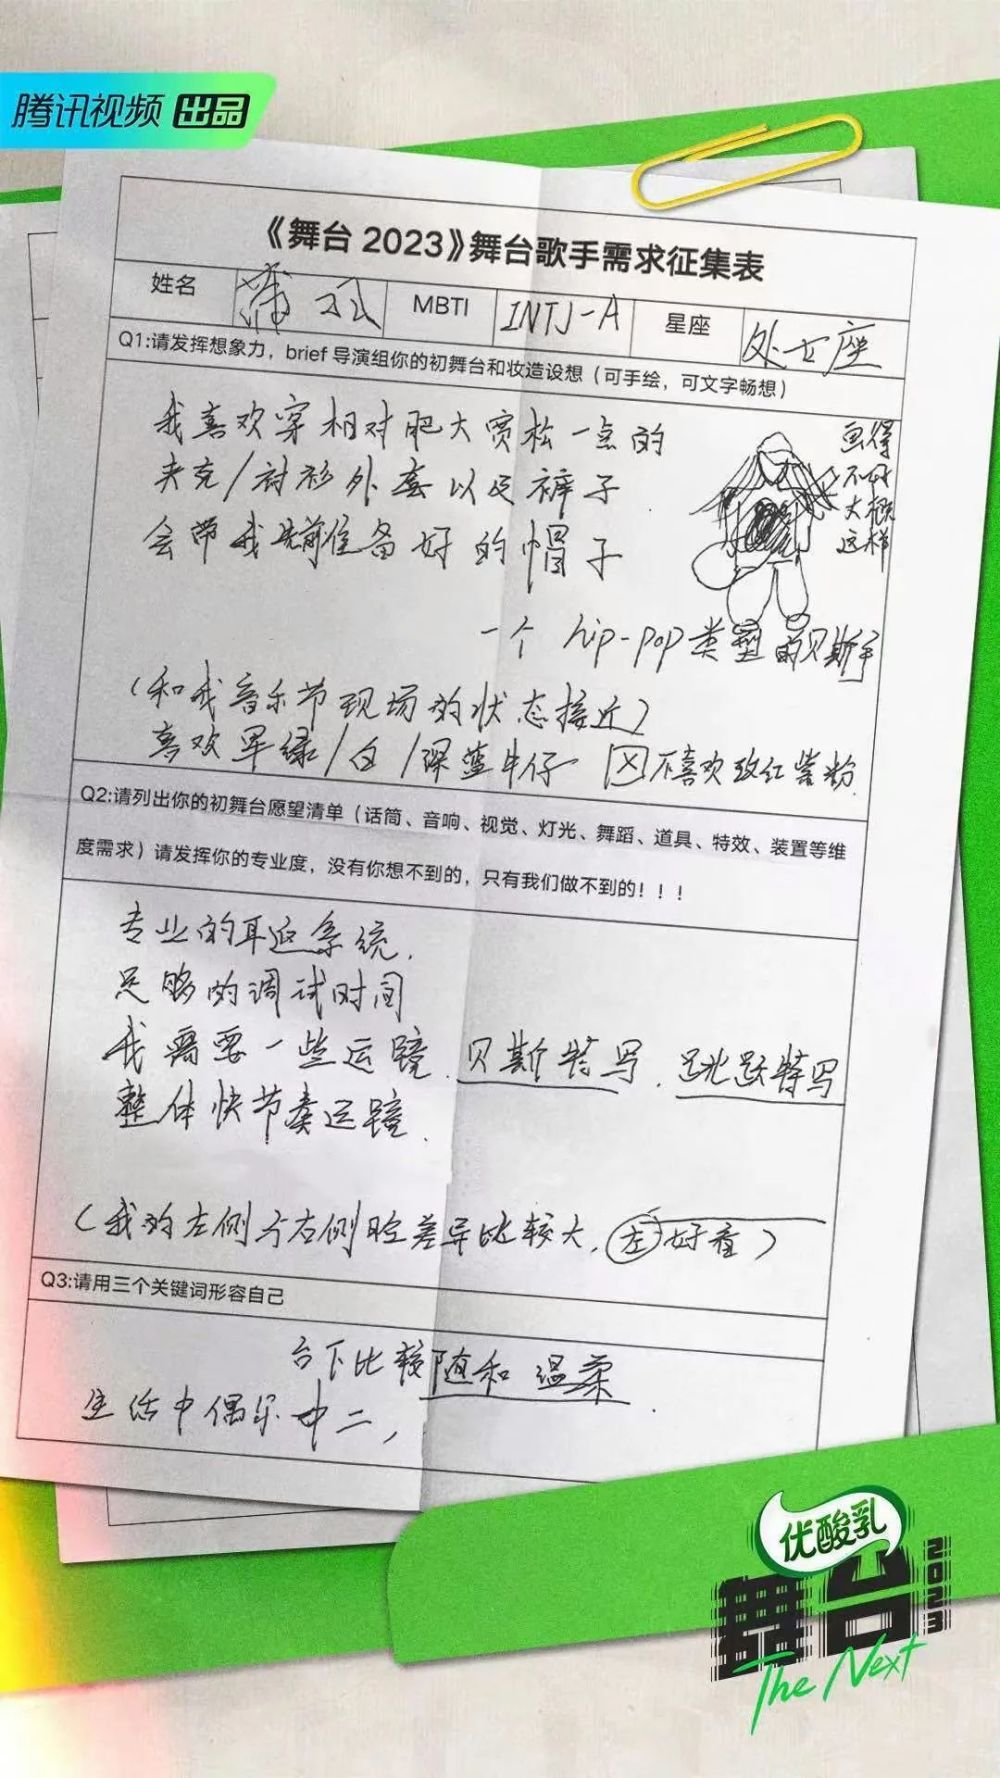 腾讯视频 出品
《舞台 2023》舞台歌手需求征集表
姓名 蒲 MBTI INTJ-A 星座 处女座
Q1:请发挥想象力，brief 导演组你的初舞台和妆造设想（可手绘，可文字畅想）
我喜欢穿相对肥大宽松一点的
夹克/衬衫外套以及裤子
会带我提前准备好的帽子
画得
不好
大概
这样
一个 hip-pop类型的贝斯手
(和我音乐节现场的状态接近)
喜欢军绿/白/深蓝牛仔 不喜欢玫红紫粉
Q2:请列出你的初舞台愿望清单（话筒、音响、视觉、灯光、舞蹈、道具、特效、装置等维
度需求）请发挥你的专业度，没有你想不到的，只有我们做不到的！！！
专业的耳返系统.
足够的调试时间
我需要一些运镜. 贝斯特写. 跳跃特写
整体快节奏运镜.
(我的左侧与右侧脸差异比较大. 左好看)
Q3:请用三个关键词形容自己
台下比较随和 温柔.
生活中偶尔中二,
优酸乳
舞台
2023
The Next